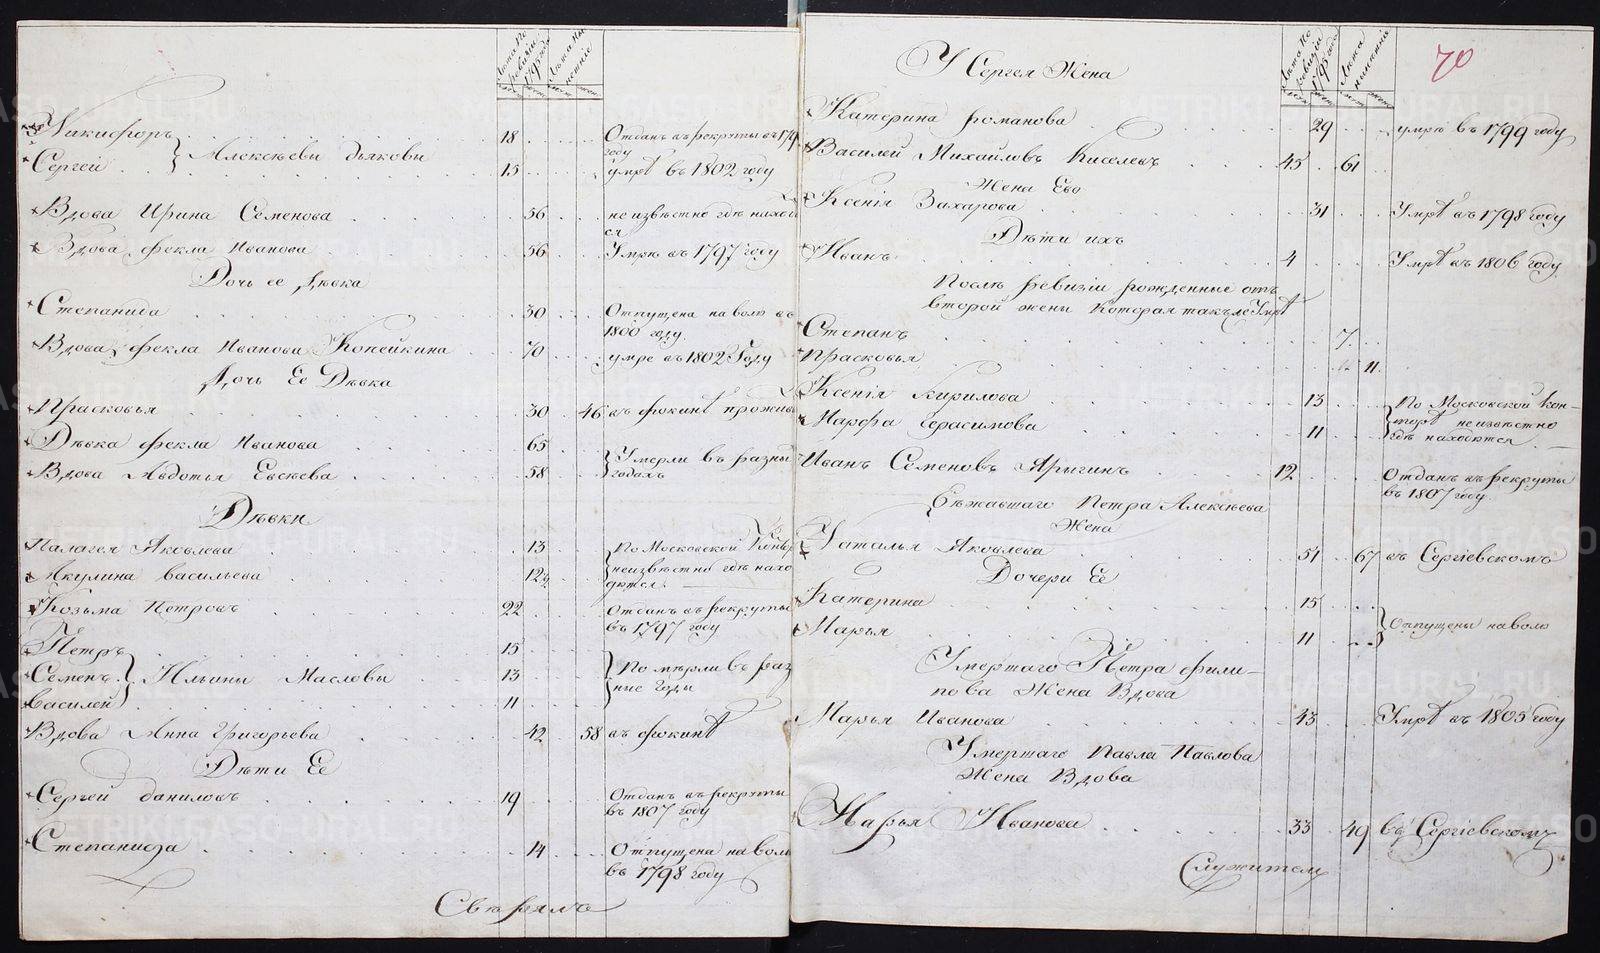 Лѣта по ревизіи 1795 году
Лѣта нынѣшніе
Никифоръ 18 Отданъ въ рекруты въ 179
году
Сергей Алексѣевы дьяковы 15 умрѣ въ 1802 году
Вдова Ирина Семенова 56 неизвѣстно гдѣ находи
ся
Вдова Фекла Иванова 56 Умрѣ въ 1797 году
Дочь ее Дѣвка
Степанида 30 Отпущена на волю въ
1800 году
Вдова Фекла Иванова Копейкина 70 умре въ 1802 Году
Дочь Ее Дѣвка
Прасковья 30 46 въ Фокинѣ прожив
Дѣвка Фекла Иванова 65
Вдова Авдотья Евсѣева 58 Умерли въ разны
годахъ
Дѣвки
Палагея Яковлева 13 По Московской Конь
Акулина Васильева 12½ неизвѣстно гдѣ нахо
дятся
Козьма Петровъ 22 Отданъ въ рекруты
въ 1797 году
Петръ 15
Семенъ Ильины Масловы 13 Помѣрли въ раз
ные годы
Василей 11
Вдова Анна Григорьева 42 58 въ Фокинѣ
Дѣти Ее
Сергей Даниловъ 19 Отданъ въ рекруты
въ 1807 году
Степанида 14 Отпущена на волю
въ 1798 году
Свѣрялъ
70
Лѣта по ревизіи 1795 году
Лѣта нынѣшніе
У Сергея Жена
Катерина Романова 29 умрѣ въ 1799 году
Василей Михайловъ Киселевъ 45 61
Жена Ево
Ксенія Захарова 31 Умрѣ въ 1798 году
Дѣти ихъ
Иванъ 4 Умрѣ въ 1806 году
Послѣ ревизіи рожденные отъ
второй жены которая также Умрѣ
Степанъ 7
Прасковья 11
Ксенія Кирилова 13 По Московской Кон-
Марфа Герасимова 11 торѣ неизвѣстно
гдѣ находятся
Иванъ Семеновъ Яригинъ 12 Отданъ въ рекруты
въ 1807 году
Бѣжавшаго Петра Алексѣева
Жена
Наталья Яковлева 51 67 въ Сергіевскомъ
Дочери Ее
Катерина 15
Марья 11 Отпущены на волю
Умершаго Петра Фили-
пова Жена Вдова
Марья Иванова 43 Умрѣ въ 1805 году
Умершаго Павла Павлова
Жена Вдова
Марья Иванова 33 49 въ Сергіевскомъ
Служители
METRIKI.GASO-URAL.RU